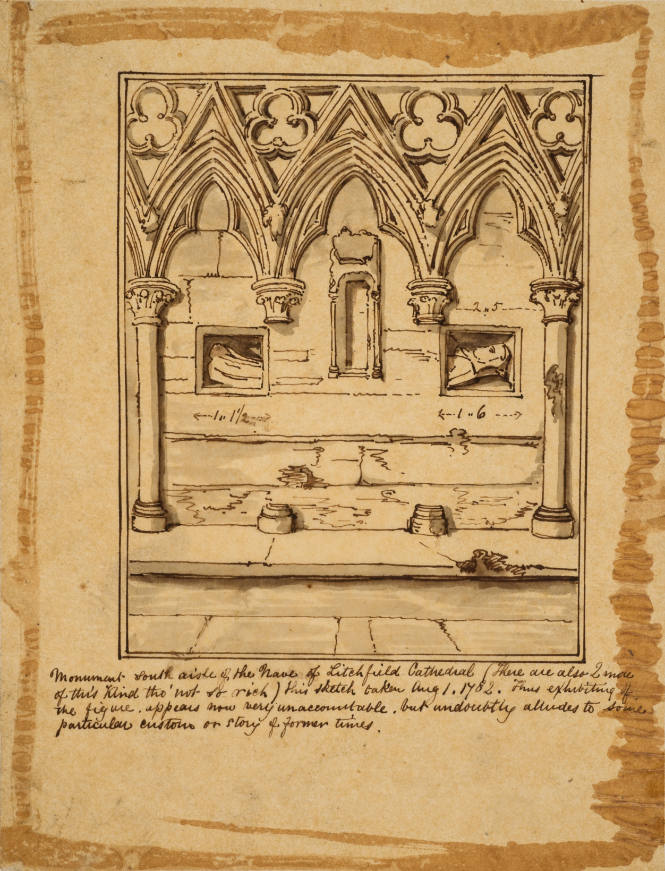 2 " 5
1 " 1½
1 " 6
Monument south aisle of the Nave of Litchfield Cathedral (There are also 2 more
of this Kind tho' not so rich) this sketch taken Aug 1. 1782. Thus exhibiting of
the figure. appears now very unaccountable. but undoubtly alludes to some
particular custom or story of former times.